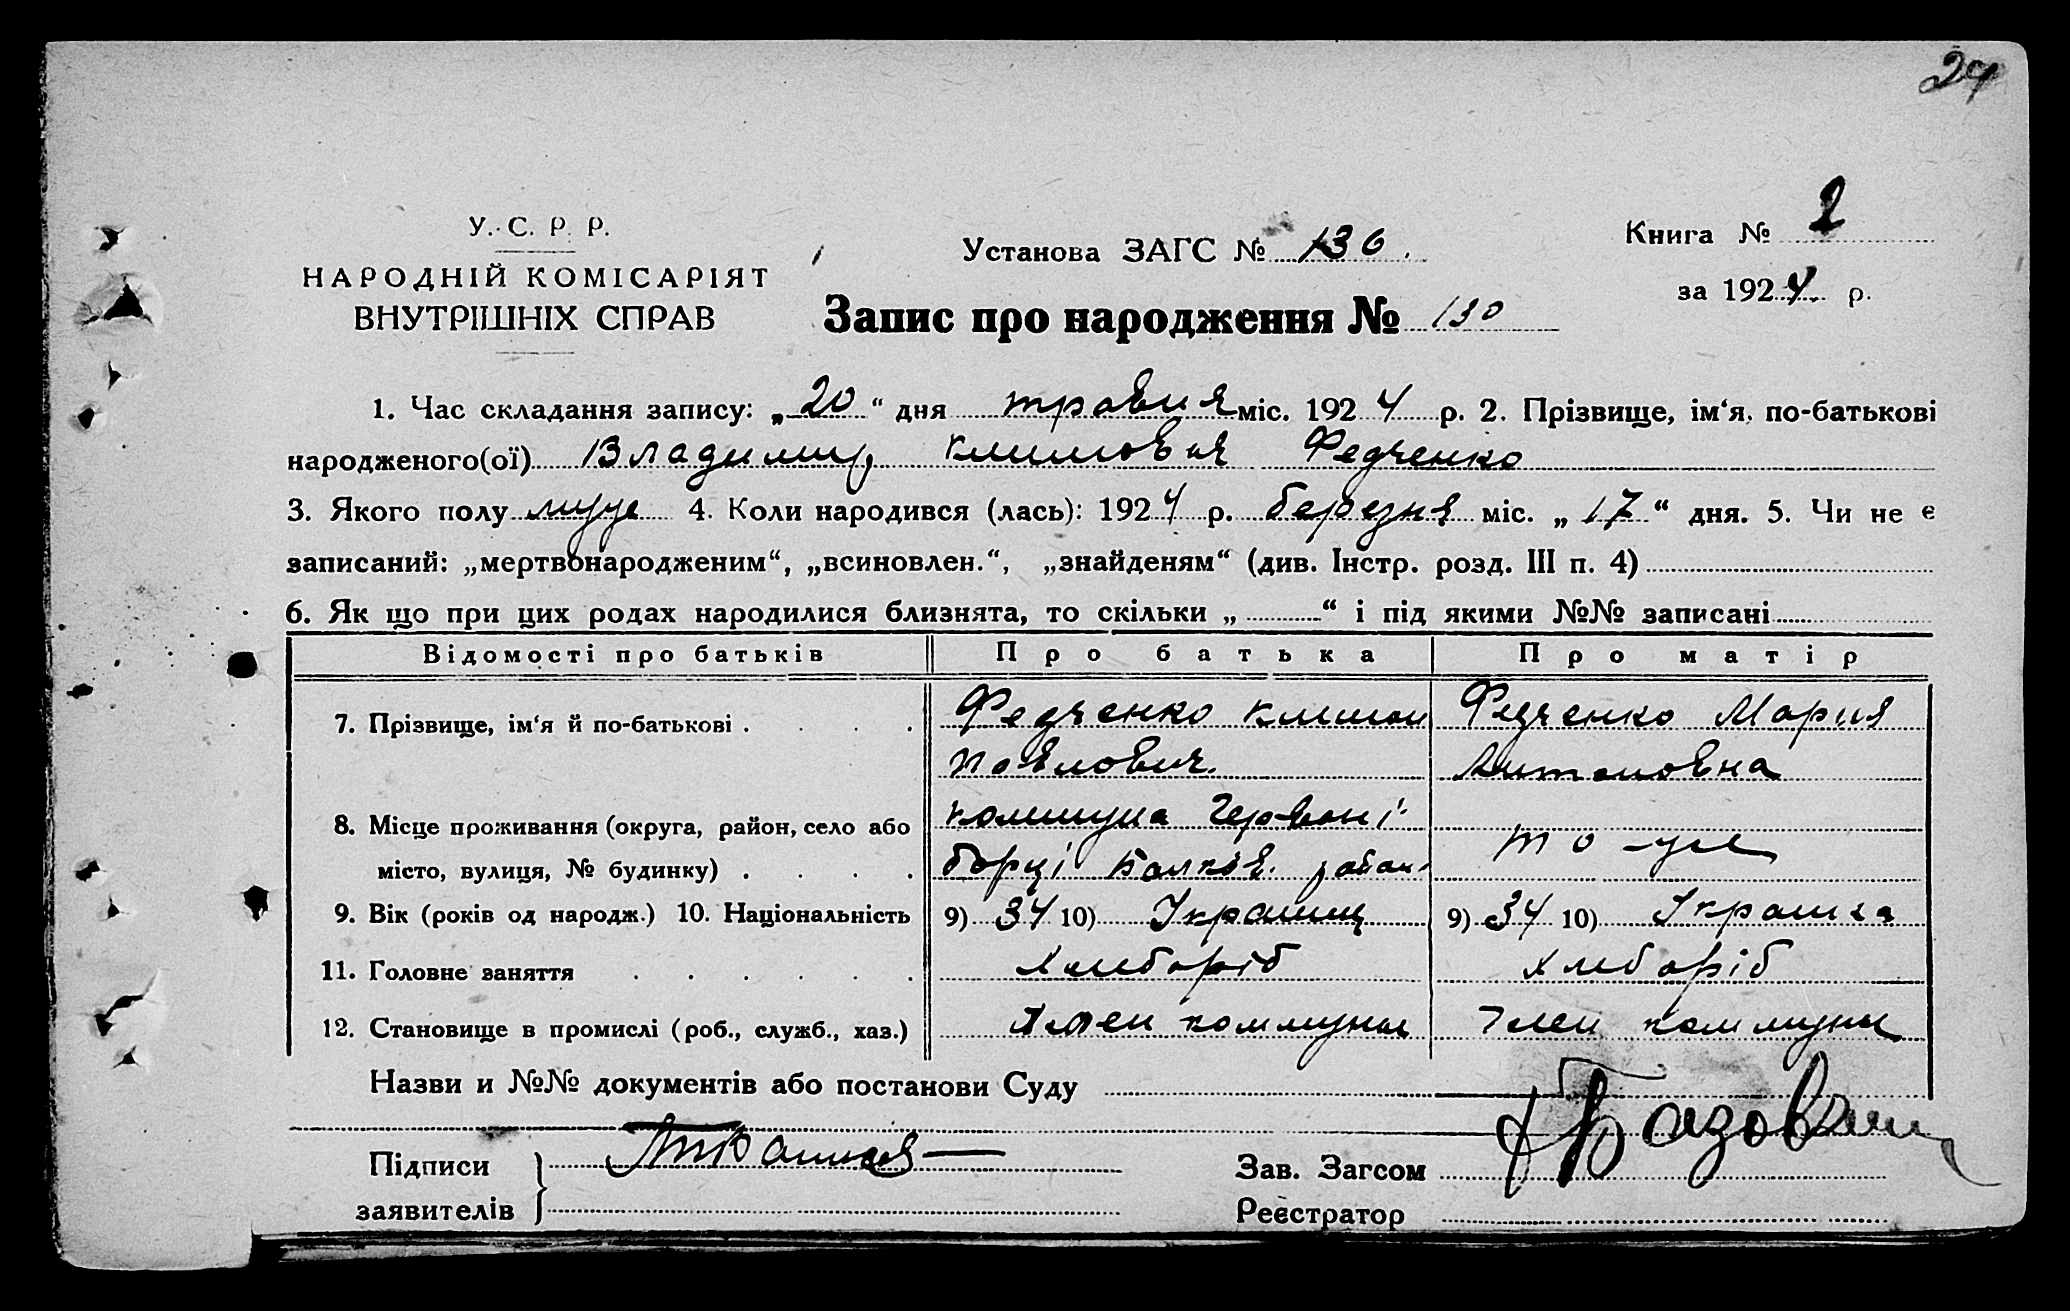 24
У. С. Р. Р.
НАРОДНІЙ КОМІСАРІЯТ
ВНУТРІШНІХ СПРАВ
Установа ЗАГС № 136.
Книга № 2
за 1924 р.
Запис про народження № 130
1. Час складання запису: „20“ дня травня міс. 1924 р. 2. Прізвище, ім‘я, по-батькові
народженого(ої) Владимир Климович Федченко
3. Якого полу муже 4. Коли народився (лась): 1924 р. березня міс. „17“ дня. 5. Чи не є
записаний: „мертвонародженим“, „всиновлен.“, „знайденям“ (див. Інстр. розд. III п. 4)
6. Як що при цих родах народилися близнята, то скільки „ “ і під якими №№ записані
Відомості про батьків Про батька Про матір
7. Прізвище, ім‘я й по-батькові . . . . Федченко Климон Федченко Мария
Павлович. Антоновна
8. Місце проживання (округа, район, село або коммуна Червоні
місто, вулиця, № будинку) . . . . борці Валків. район. то-же
9. Вік (років од народж.) 10. Національність 9) 34 10) Украинц 9) 34 10) Украинка
11. Головне заняття . . . . . . Хлибориб хлибориб
12. Становище в промислі (роб., служб., хаз.) Член коммуны Член коммуны
Назви и №№ документів або постанови Суду
Підписи
заявителів
Зав. Загсом
Реєстратор